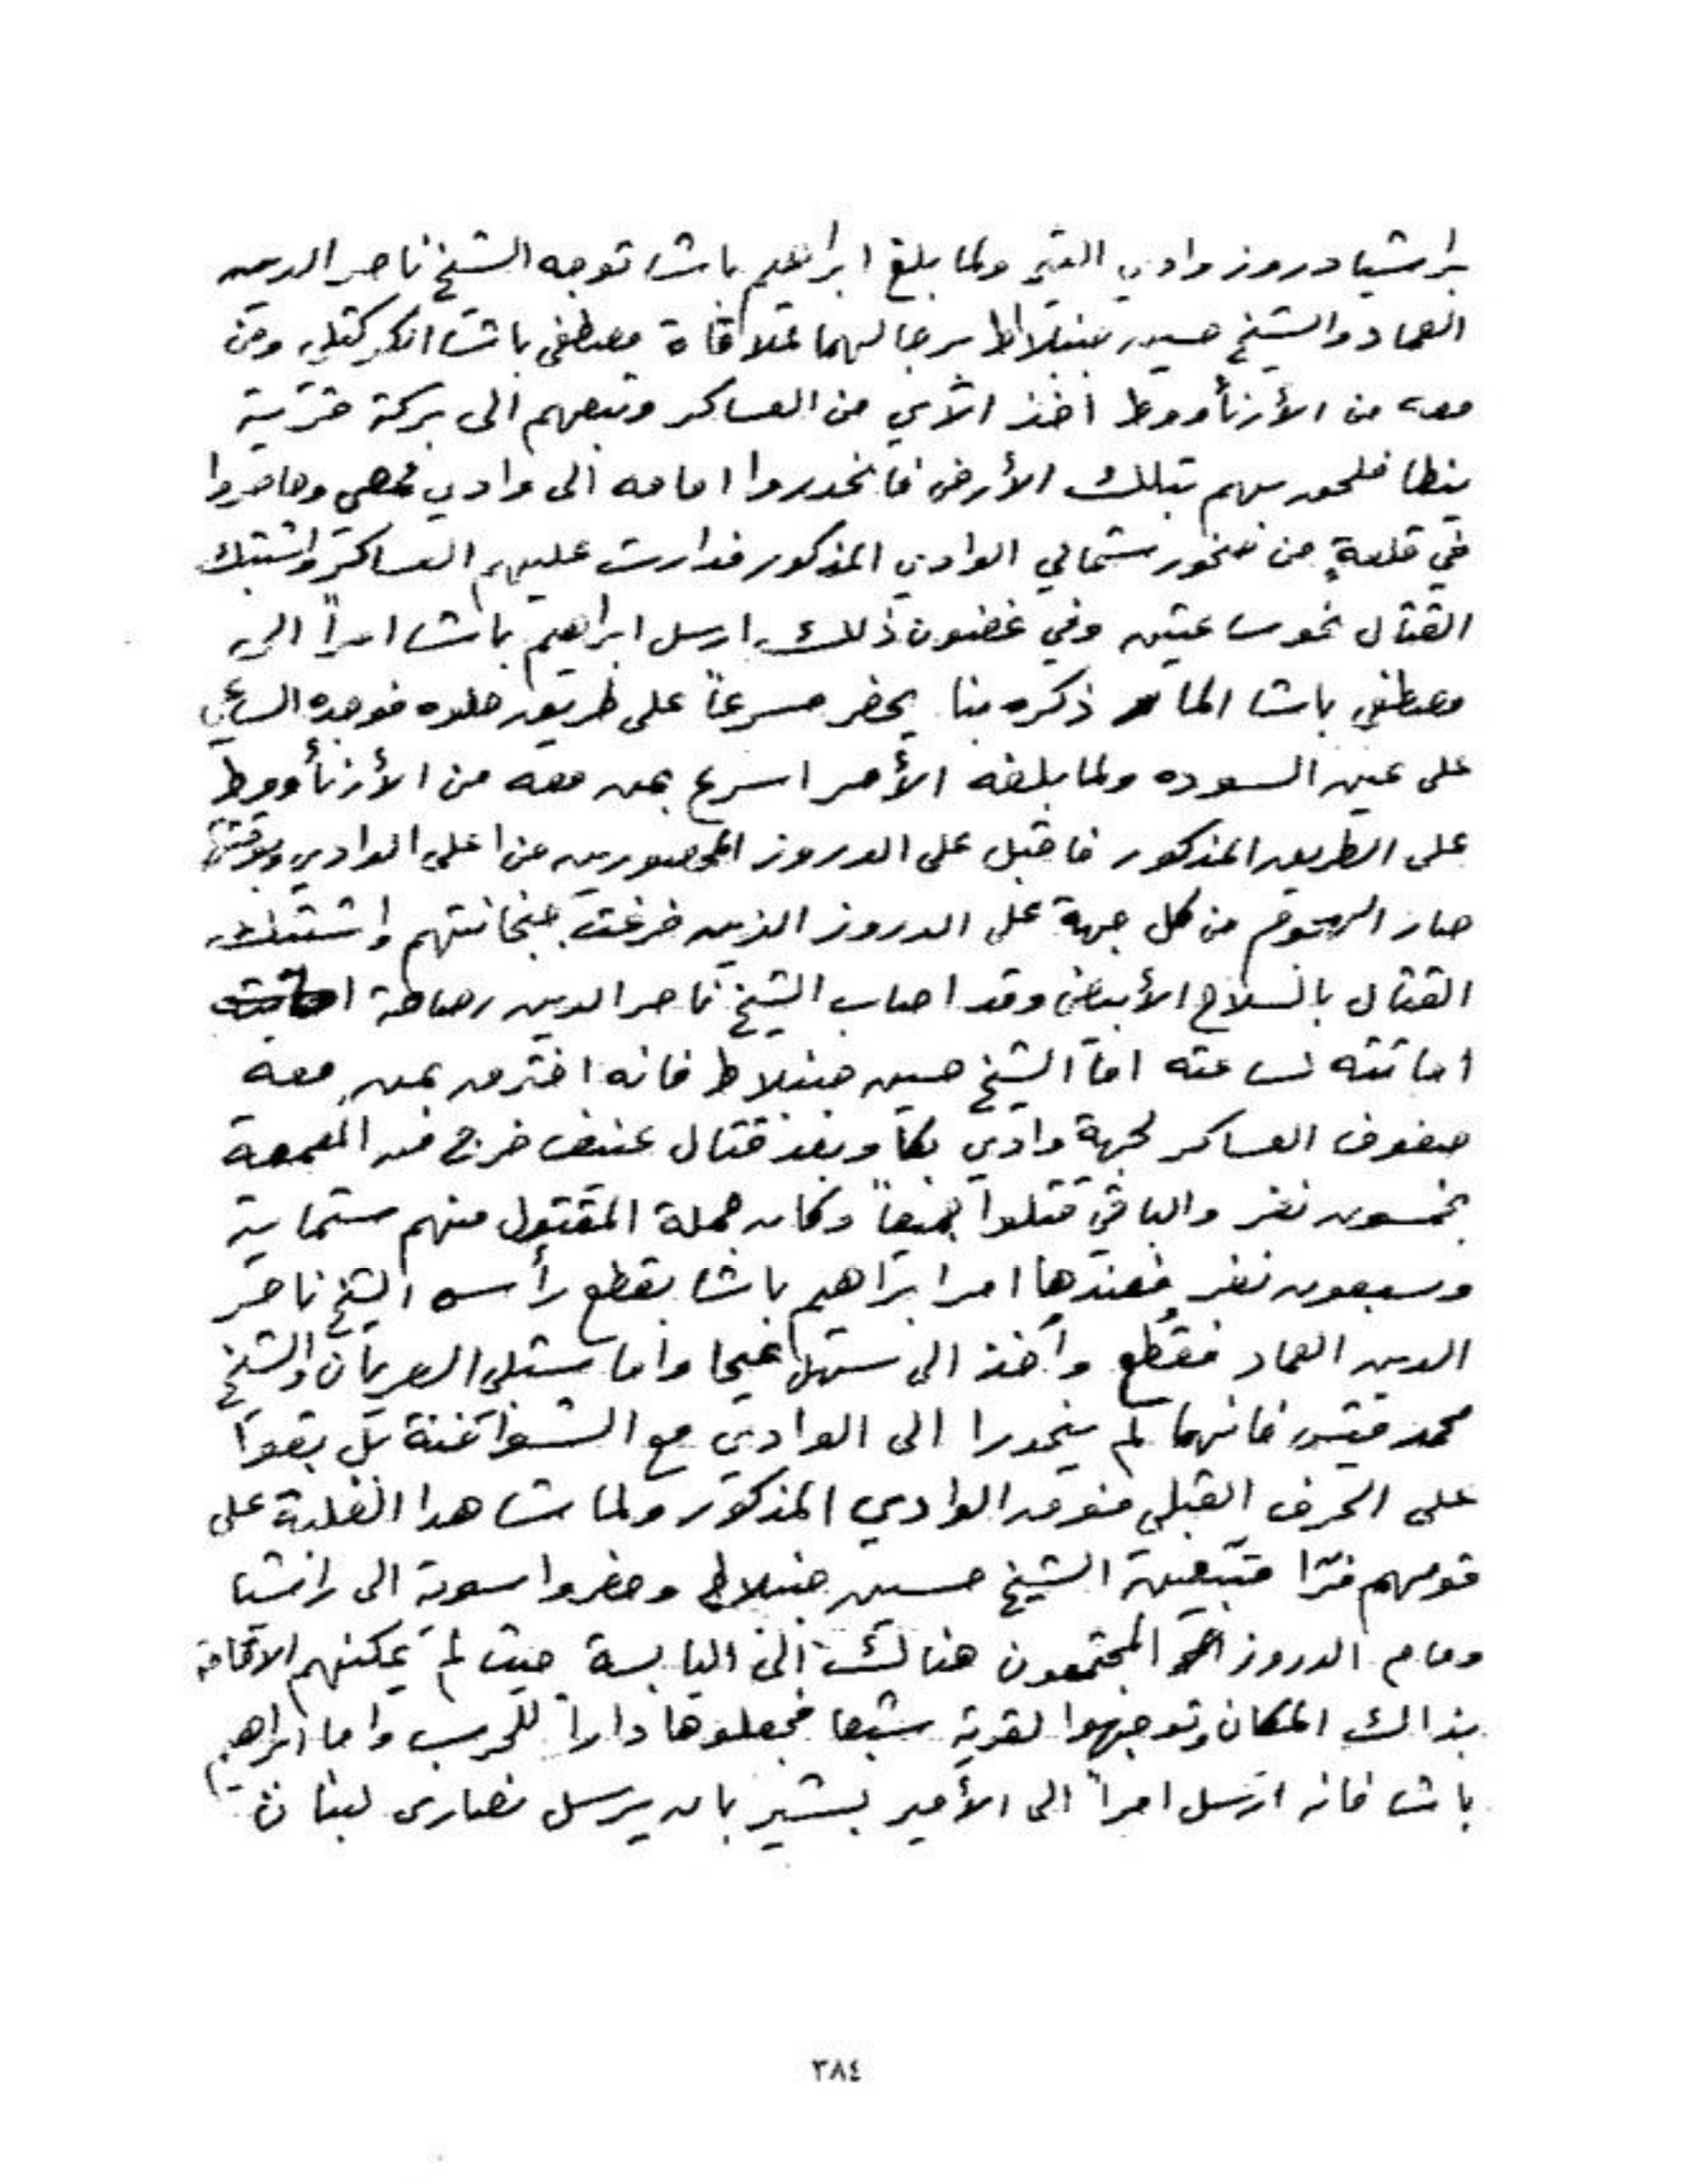 براشيا دروز وادي التيم ولما بلغ ابراهيم باشا توجه الشيخ ناصر الدين
العماد والشيخ حسين جنبلاط برجالهما لملاقاة مصطفى باشا الكركتلي ومن
معه من الأرنأووط اخذ الآي من العساكر وتبعهم الى بركة خربة
ينطا فلحق بهم بتلك الأرض فانحدروا امامه الى وادي وحاصروا
في قلعةٍ من صخور شمالي الوادي المذكور فدارت عليهم العساكر واشتبك
القتال نحو ساعتين وفي غضون ذلك ارسل ابراهيم باشا امراً الى
مصطفى باشا المار ذكره بنا يحضر مسرعاً على طريق حلوه فوجده الساعي
على عين السوده ولما بلغه الأمر اسرع بمن معه من الأرنأووط
على الطريق المذكور فاقبل على الدروز المحصورين من اعلى الوادي
صار الهجوم من كل جهة على الدروز الذين فرغت جبخانتهم واشتبك
القتال بالسلاح الأبيض وقد اصاب الشيخ ناصر الدين رصاصة
اماتته لساعته اما الشيخ حسين جنبلاط فانه اخترق بمن معه
صفوف العساكر لجهة وادي بكا وبعد قتال عنيف خرج من المعمعة
بخمسون نفر والباقي قتلوا جميعاً وكان جملة المقتول منهم ستماية
وسبعون نفر فعندها امر ابراهيم باشا بقطع رأس الشيخ ناصر
الدين العماد فقُطع وأُخذ الى سهل عيحا واما شبلي العريان والشيخ
محمد قيس فانهما لم ينحدرا الى الوادي مع الشوافنة بل بقوا
على الحرف القبلي فوق الوادي المذكور ولما شاهدا الغلبة على
قومهم فرّا متبعين الشيخ حسين جنبلاط وحضروا سوية الى راشيا
وقام الدروز المجتمعون هنالك الى اليابسة حيث لم يمكنهم الاقامة
بذاك المكان وتوجهوا لقرية شبعا فجعلوها داراً للحرب واما ابراهيم
باشا فانه ارسل امراً الى الأمير بشير بان يرسل نصارى لبنان
٣٨٤